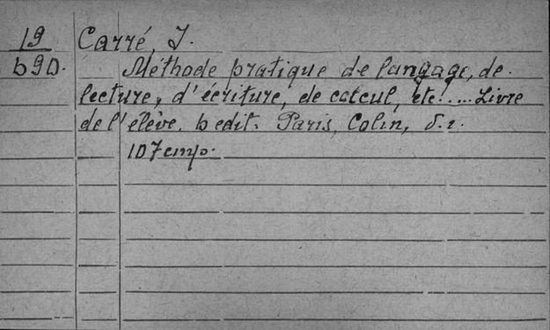 19 Carré, I.
690. Méthode pratique de langage, de
lecture, d'écriture, de calcul, etc..... Livre
de l'élève. 6 edit. Paris, Colin, s.
107